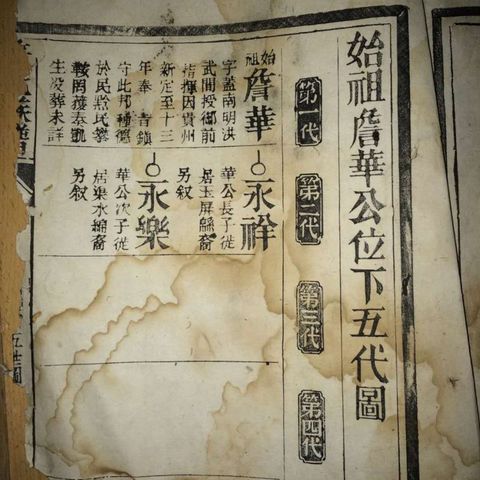 始祖詹華公位下五代圖
第一代
第二代
第三代
第四代
始祖
詹華
字蓋南明洪
武間授御前
指揮因貴州
新定至十三
年奉 旨鎮
守此邦種德
於民黔民攀
轅罔獲奉
生没葬未詳
永祥
華公長子從
居玉屏縣裔
另叙
永樂
華公次子從
居渠水裔
另叙
五世圖